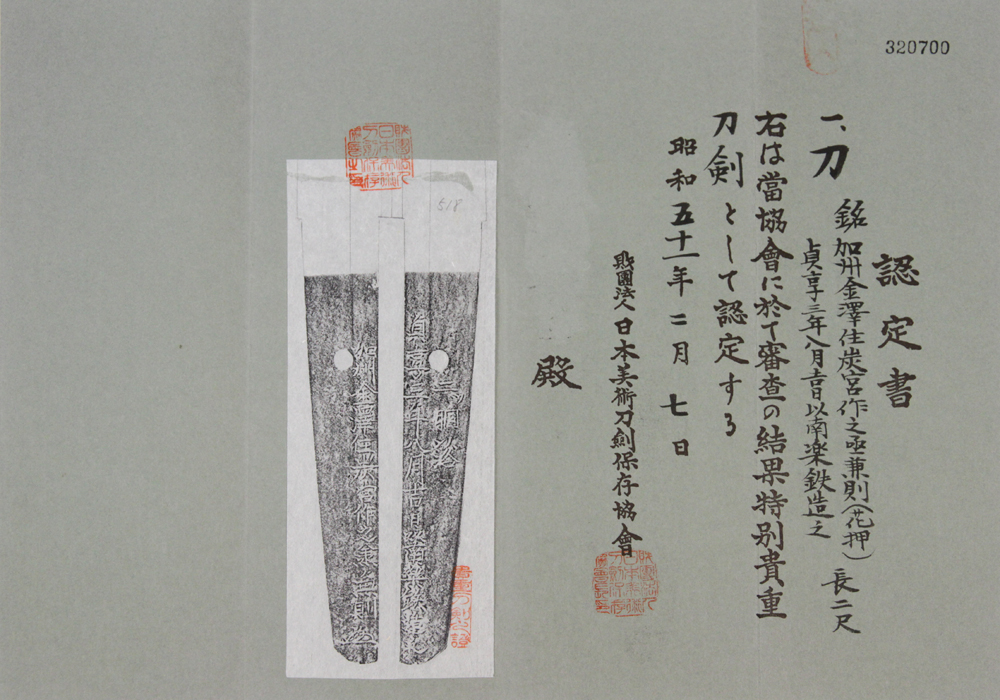 320700
認定書
一、刀 銘 加州金澤住炭宮作之丞兼則(花押) 長二尺
貞享三年八月吉日以南楽鉄造之
右は當協會に於て審査の結果特別貴重
刀剣として認定する
昭和五十一年二月七日
財團法人日本美術刀剣保存協會
殿
518
貞享三年八月吉日